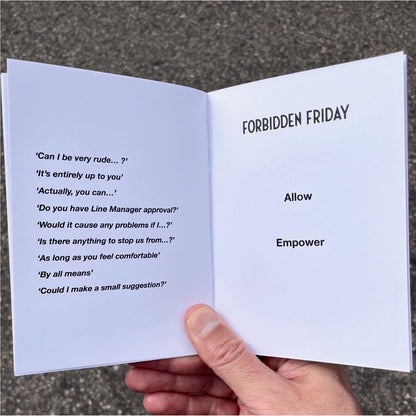 ‘Can I be very rude... ?’
‘It’s entirely up to you’
‘Actually, you can...’
‘Do you have Line Manager approval?’
‘Would it cause any problems if I...?’
‘Is there anything to stop us from...?’
‘As long as you feel comfortable’
‘By all means’
‘Could I make a small suggestion?’
FORBIDDEN FRIDAY
Allow
Empower